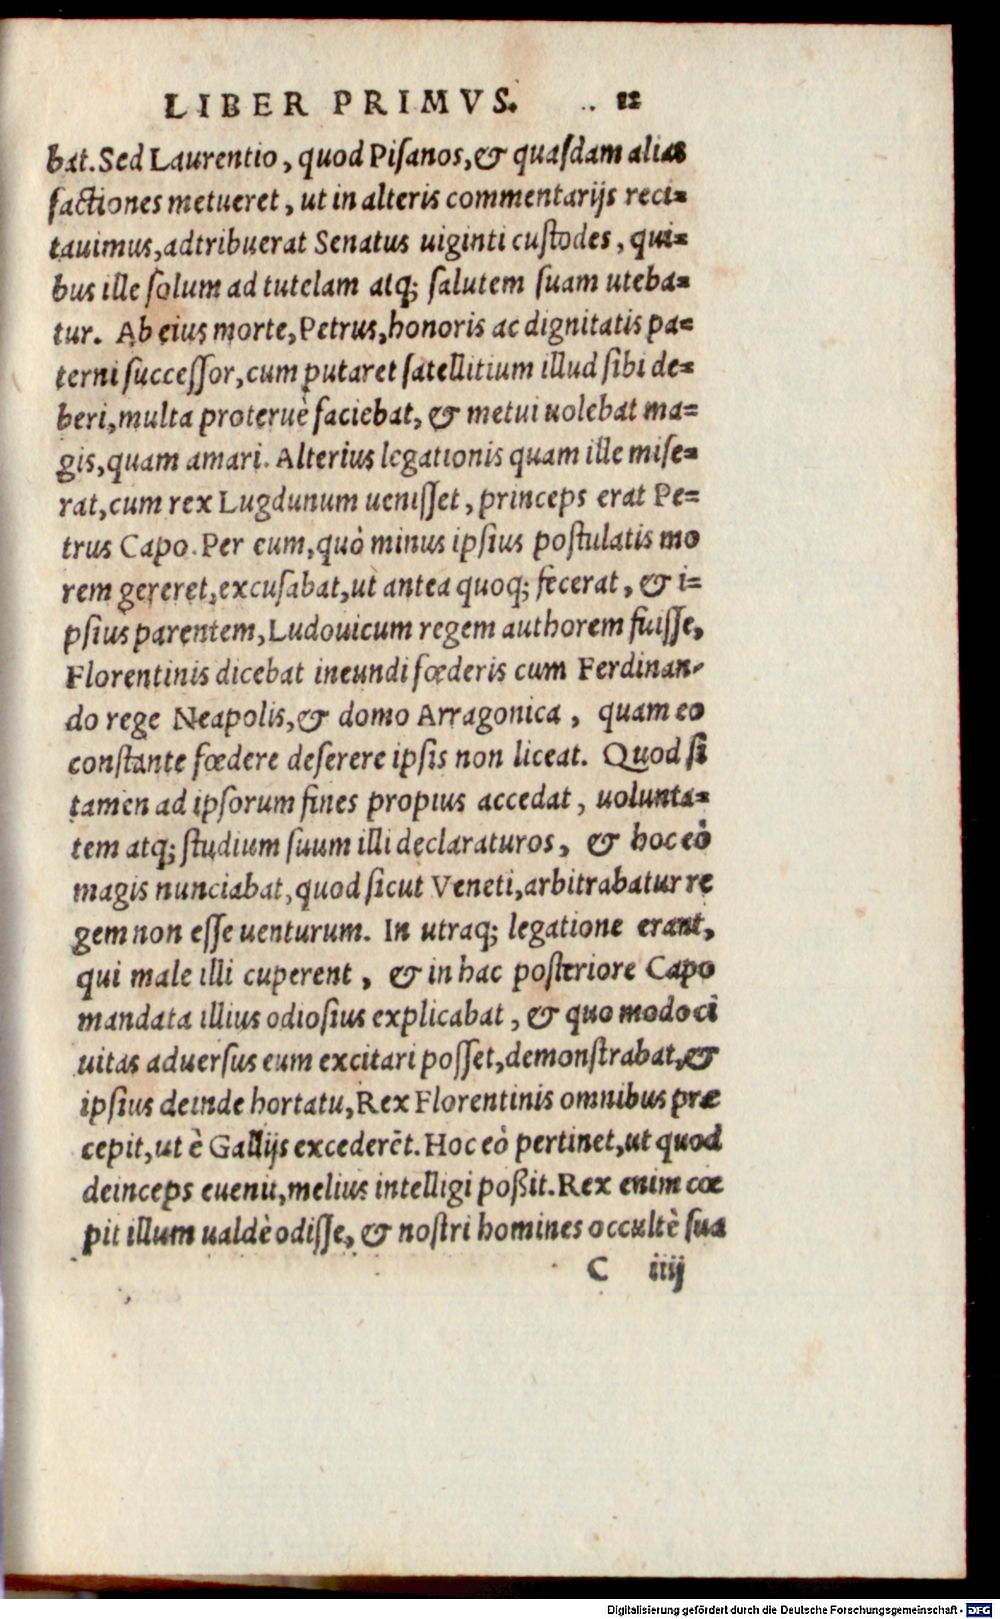 LIBER PRIMVS. 12
bat. Sed Laurentio, quod Pisanos, & quasdam alias
factiones metueret, ut in alteris commentarijs reci=
tauimus, adtribuerat Senatus uiginti custodes, qui=
bus ille solum ad tutelam atq; salutem suam uteba=
tur. Ab eius morte, Petrus, honoris ac dignitatis pa=
terni successor, cum putaret satellitium illud sibi de=
beri, multa proteruè faciebat, & metui uolebat ma=
gis, quam amari. Alterius legationis quam ille mise=
rat, cum rex Lugdunum uenisset, princeps erat Pe=
trus Capo. Per eum, quò minus ipsius postulatis mo
rem gereret, excusabat, ut antea quoq; fecerat, & i=
psius parentem, Ludouicum regem authorem fuisse,
Florentinis dicebat ineundi fœderis cum Ferdinan-
do rege Neapolis, & domo Arragonica, quam eo
constante fœdere deserere ipsis non liceat. Quod si
tamen ad ipsorum fines propius accedat, uolunta=
tem atq; studium suum illi declaraturos, & hoc eò
magis nunciabat, quod sicut Veneti, arbitrabatur re
gem non esse uenturum. In utraq; legatione erant,
qui male illi cuperent, & in hac posteriore Capo
mandata illius odiosius explicabat, & quo modo ci
uitas aduersus eum excitari posset, demonstrabat, &
ipsius deinde hortatu, Rex Florentinis omnibus præ
cepit, ut è Gallijs excederēt. Hoc eò pertinet, ut quod
deinceps euenit, melius intelligi poßit. Rex enim cœ
pit illum ualdè odisse, & nostri homines occultè sua
C iiij
Digitalisierung gefördert durch die Deutsche Forschungsgemeinschaft - DFG